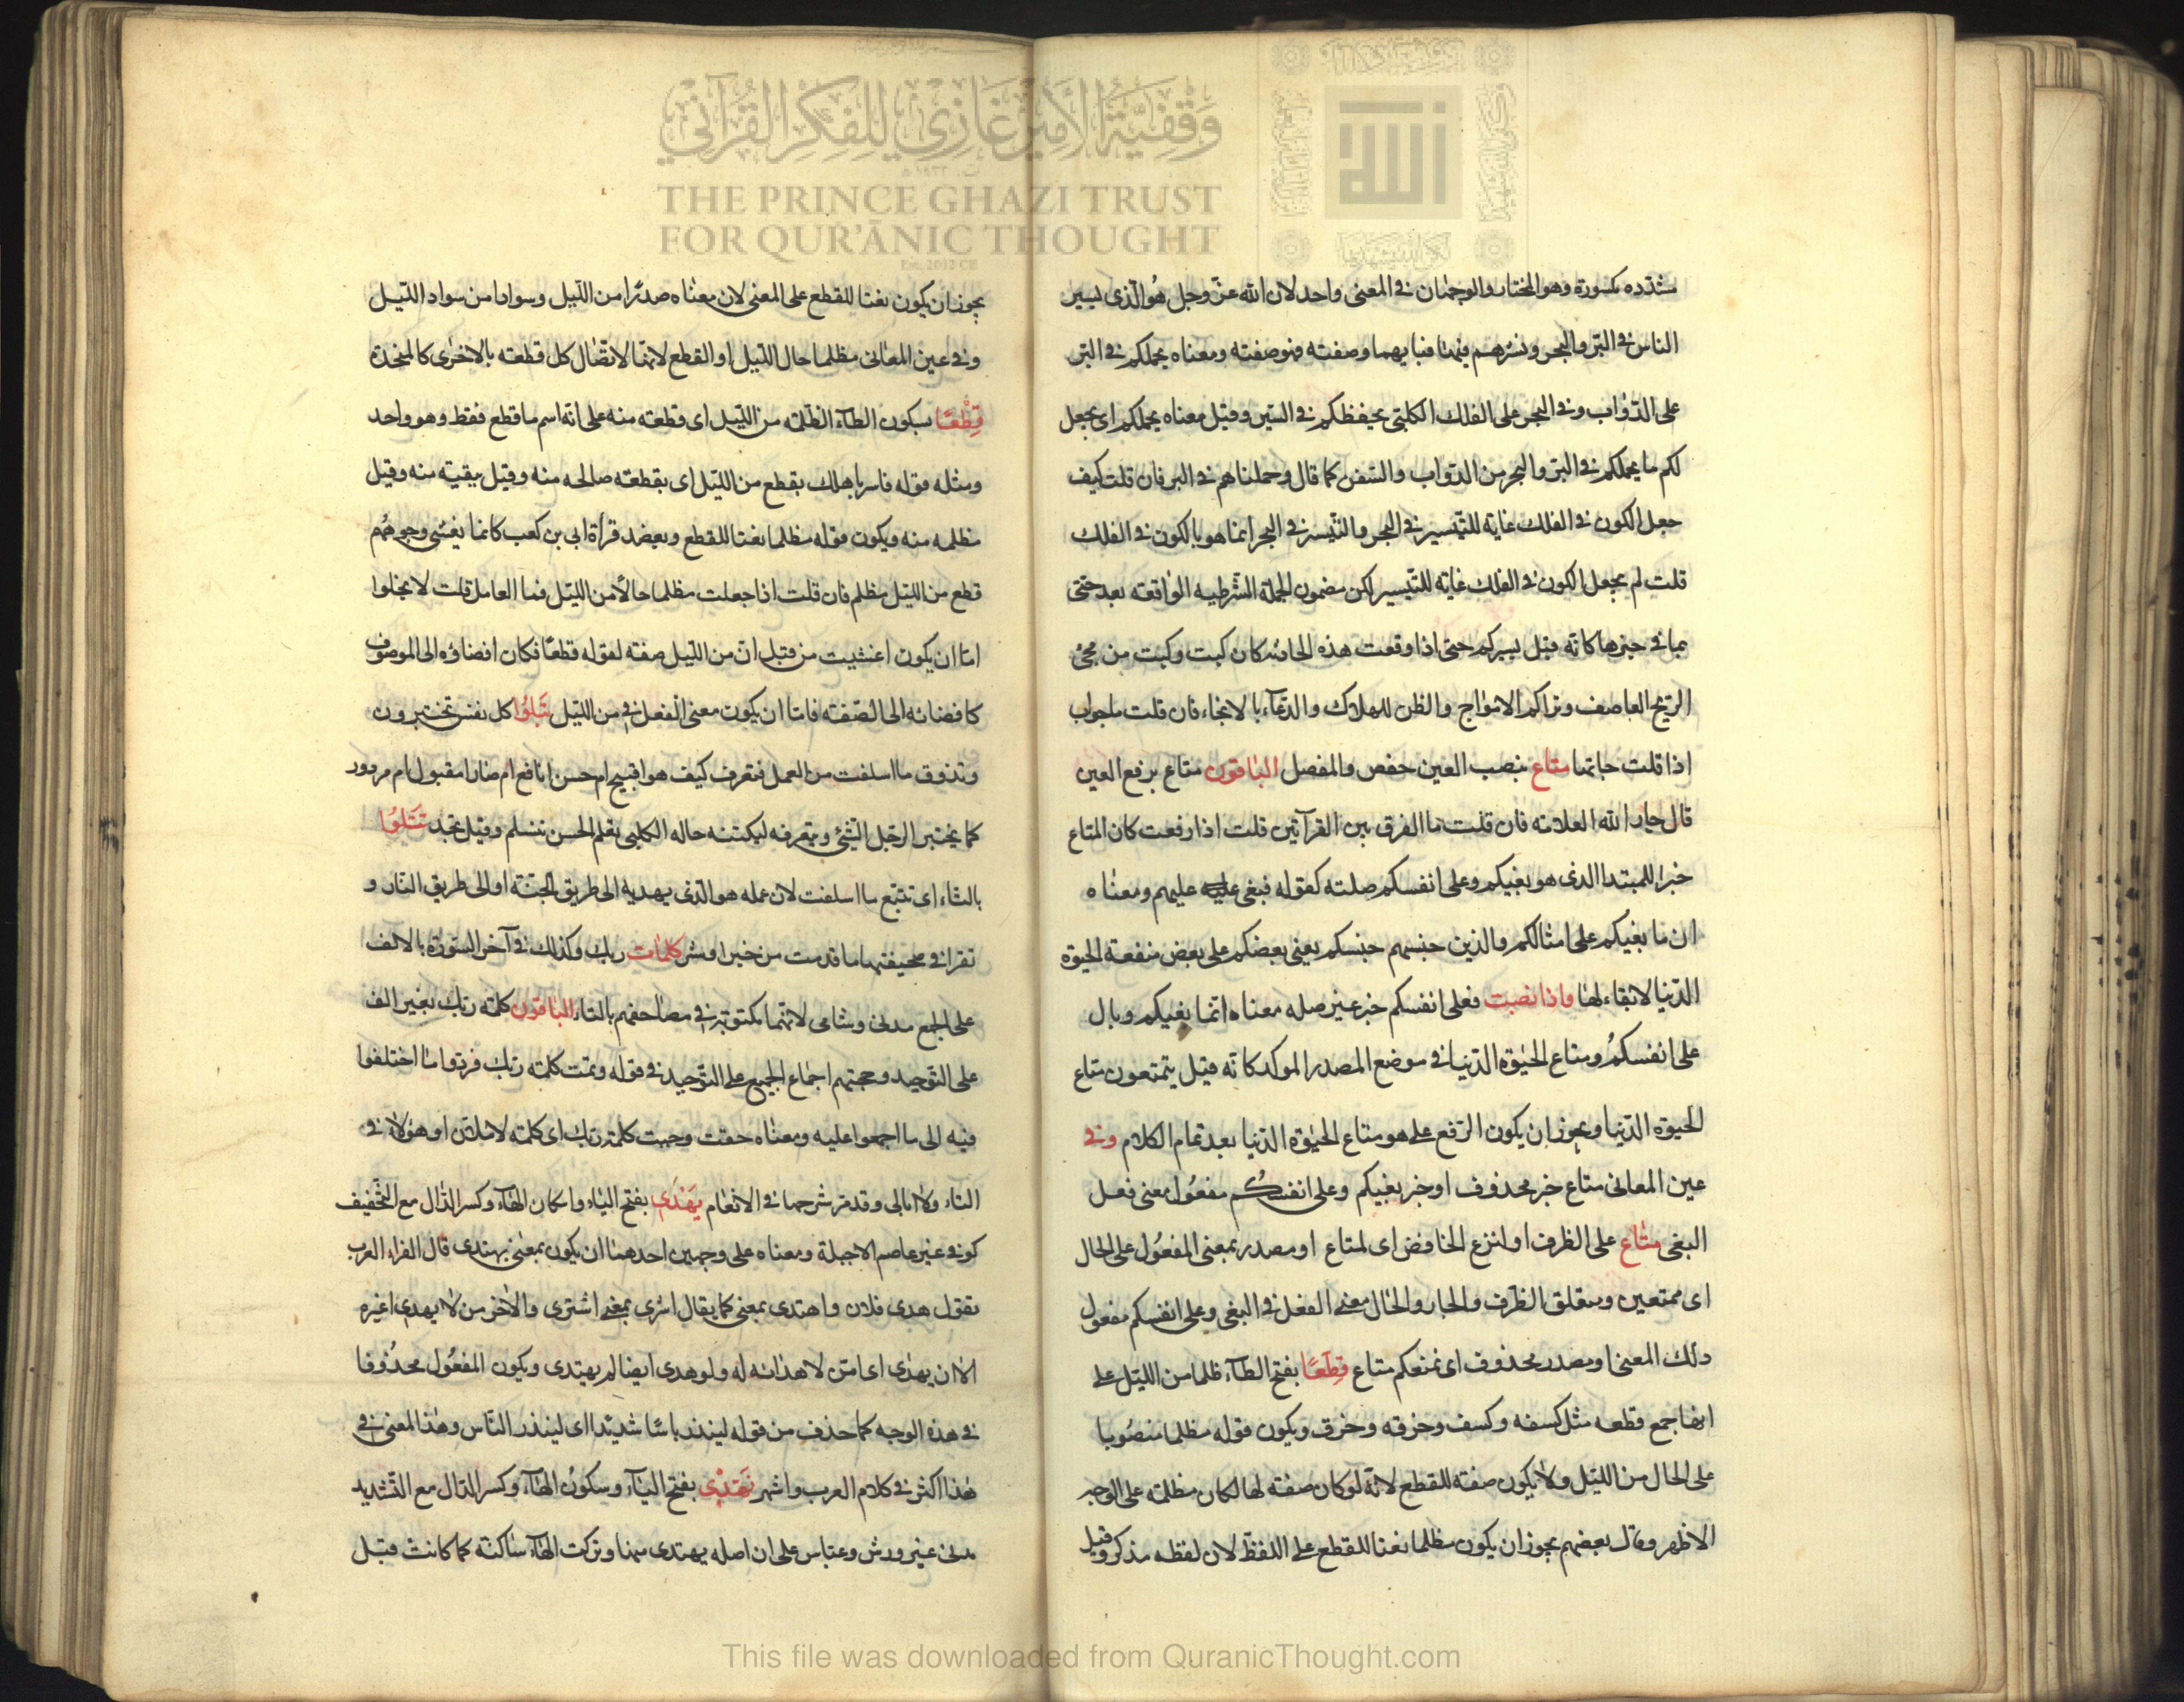 وقفية الأمير غازي للفكر القرآني
THE PRINCE GHAZI TRUST
FOR QUR'ĀNIC THOUGHT
Est. 2012 CE
مشدده مكسورة وهو المختار والوجهان في المعنى واحد لان الله عز وجل هو الذى يسير
الناس في البر والبحر وننشرهم فيهما فبايهما وصفته فهو صفته ومعناه يحملكم في البر
على الدواب وفي البحر على الفلك الكلبى يحفظكم في السير وقيل معناه يحملكم اى يجعل
لكم ما يحملكم في البر والبحر من الدواب والسفن كما قال وحملناهم في البر فان قلت كيف
جعل الكون في الفلك غاية للتيسير في البحر والتيسير في البحر انما هو بالكون في الفلك
قلت لم يجعل الكون في الفلك غاية للتيسير لكن مضمون الجملة الشرطيه الواقعة بعد حتى
بما في حيزها كانه قيل يسيركم حتى اذا وقعت هذه الحادثه كان كيت وكيت من مجئ
الريح العاصف وتراكم الامواج والظن للهلاك والدعاء بالانجاء فان قلت ماجواب
اذا قلت جاءتها متاع بنصب العين حفص والمفضل الباقون متاع برفع العين
قال جار الله العلامة فان قلت ما الفرق بين القرآتين قلت اذا رفعت كان المتاع
خبرا للمبتدا الذى هو بغيكم وعلى انفسكم صلته كقوله فبغى عليه عليهم ومعناه
ان ما بغيكم على امثالكم والذين جنسهم جنسكم يعنى بعضكم على بعض منفعة الحيوة
الدنيا لا بقاء لها واذا نصبت فعلى انفسكم خبر غير صله معناه انما بغيكم وبال
على انفسكم ومتاع الحيوة الدنيا في موضع المصدر الموكد كانه قيل يتمتعون متاع
الحيوة الدنيا ويجوز ان يكون الرفع على هو متاع الحيوة الدنيا بعد تمام الكلام وفي
عين المعانى متاع خبر محذوف او خبر بغيكم وعلى انفسكم مفعول معنى فعل
البغى متاع على الظرف او لنزع الخافض اى لمتاع او مصدر بمعنى المفعول على الحال
اى ممتعين ومتعلق الظرف والجار والحال معنى الفعل في البغى وعلى انفسكم مفعول
ذلك المعنى او مصدر محذوف اى نمتعكم متاع قطعا بفتح الطاء ظلما من الليل على
انها جمع قطعه مثل كسفه وكسف وخرقه وخرق ويكون قوله مظلما منصوبا
على الحال من الليل ولا يكون صفة للقطع لانه لو كان صفة لها لكان مظلمة على الوجه
الاظهر وقال بعضهم يجوز ان يكون مظلما نعتا للقطع على اللفظ لان لفظه مذكر وقيل
يجوز ان يكون نعتا للقطع على المعنى لان معناه صدرا من الليل وسوادا من سواد الليل
وفي عين المعانى مظلما حال الليل او القطع لانها لاتصال كل قطعة بالاخرى كالمتحدة
قطعا بسكون الطاء الظلمة من الليل اى قطعة منه على انه اسم ما قطع فقط وهو واحد
ومثله قوله فاسر باهلك بقطع من الليل اى بقطعة صالحه منه وقيل بقية منه وقيل
مظلمه منه ويكون قوله مظلما نعتا للقطع ويعضد قرأة ابى بن كعب كانما يغشى وجوههم
قطع من الليل مظلم فان قلت اذا جعلت مظلما حالا من الليل فما العامل قلت لا يخلوا
اما ان يكون اغشيت من قبل ان من الليل صفة لقوله قطعا فكان افضاؤه الى الموصوف
كافضائه الى الصفة فاما ان يكون معنى الفعل في من الليل تبلوا كل نفس تختبر ون
وتذوق ما اسلفت من العمل فتعرف كيف هو اقبيح ام حسن انافع ام ضار امقبول ام مردود
كما يختبر الرجل الشئ ويتعرفه ليكتنه حاله الكلبى تعلم الحسن تسلم وقيل تجد تتلوا
بالتاء اى تتبع ما اسلفت لان عمله هو الذى يهديه الى طريق الجنة او الى طريق النار و
تقرا في صحيفتها ما قدمت من خير او شر كلمات ربك وكذلك في آخر السورة بالالف
على الجمع مدنى وشامى لانهما مكتوبة في مصاحفهم بالتاء الباقون كلمة ربك بغير الف
على التوحيد وحجتهم اجماع الجميع على التوحيد في قوله وتمت كلمة ربك فردوا ما اختلفوا
فيه الى ما اجمعوا عليه ومعناه حقت وجبت كلمة ربك اى كلمته لاملان او هؤلاء في
النار ولا ابالى وقد مر شرحها في الانعام يهدى بفتح الياء واسكان الهاء وكسر الدال مع التخفيف
كوفى غير عاصم الا جبلة ومعناه على وجهين احدهما ان يكون بمعنى يهتدى قال الفراء العرب
تقول هدى فلان واهتدى بمعنى كما يقال اشرى بمعنى اشترى والاخر من لا يهدى غيره
الا ان يهدى اى امن لا هداية له ولو هدى ايضا لم يهتدى ويكون المفعول محذوفا
في هذه الوجه كما حذف من قوله لينذر باسا شديدا اى لينذر الناس وهذا المعنى في
هذا اكثر في كلام العرب واشهر تهدى بفتح الياء وسكون الهاء وكسر الدال مع التشديد
مدنى غير ورش وعباس على ان اصله يهتدى منها وتركت الهاء ساكنة كما كانت قبل
This file was downloaded from QuranicThought.com